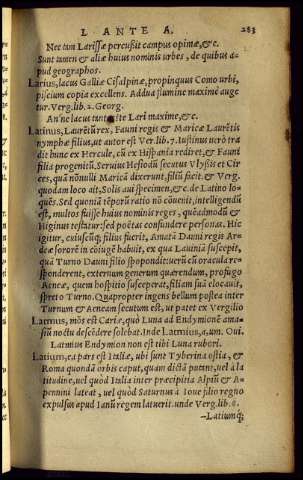 L ANTE A. 283
Nec tam Larissæ percussit campus opimæ, &c.
Sunt tamen & aliæ huius nominis urbes, de quibus a-
pud geographos.
Larius, lacus Galliæ Cisalpinæ, propinquus Como urbi,
piscium copia excellens. Addua flumine maxime auge
tur. Verg. lib. 2. Georg.
An ne lacus tantos te Lari maxime, &c.
Latinus, Laurētū rex, Fauni regis & Maricæ Laurētis
nymphæ filius, ut autor est Ver lib. 7. Iustinus uerò tra
dit hunc ex Hercule, cū ex Hispania rediret, & Fauni
filia progenitū. Seruius Hesiodū secutus Vlyssis et Cir
ces, quā nōnulli Maricā dixerunt, filiū facit. & Verg.
quodam loco ait, Solis aui specimen, &c. de Latino lo-
quēs. Sed quoniā tēporū ratio nō cōuenit, intelligendū
est, multos fuisse huius nominis reges, quēadmodū &
Higinus testatur: sed poëtas confundere personas. Hic
igitur, cuiuscūq; filius fuerit, Amatā Dauni regis Ar-
deæ sororē in cōiugē habuit, ex qua Lauinia suscepit,
quā Turno Dauni filio spopondit: uerū cū oracula re-
sponderent, externum generum quærendum, profugo
Aeneæ, quem hospitio susceperat, filiam suā elocauit,
spreto Turno. Quapropter ingens bellum postea inter
Turnum & Aeneam secutum est, ut patet ex Vergilio
Latmus, mōs est Cariæ, quò Luna ad Endymionē ama-
sium noctu descēdere solebat. Inde Latmius, a, um. Oui.
Latmius Endymion non est tibi Luna rubori.
Latium, ea pars est Italiæ, ubi sunt Tyberina ostia, &
Roma quondā orbis caput, quam dictā putant, uel à la
titudine, uel quòd Italia inter præcipitia Alpiū & A-
pennini lateat, uel quòd Saturnus à Ioue filio regno
expulsus apud Ianū regem latuerit. unde Verg. lib. 8.
—Latiumq;